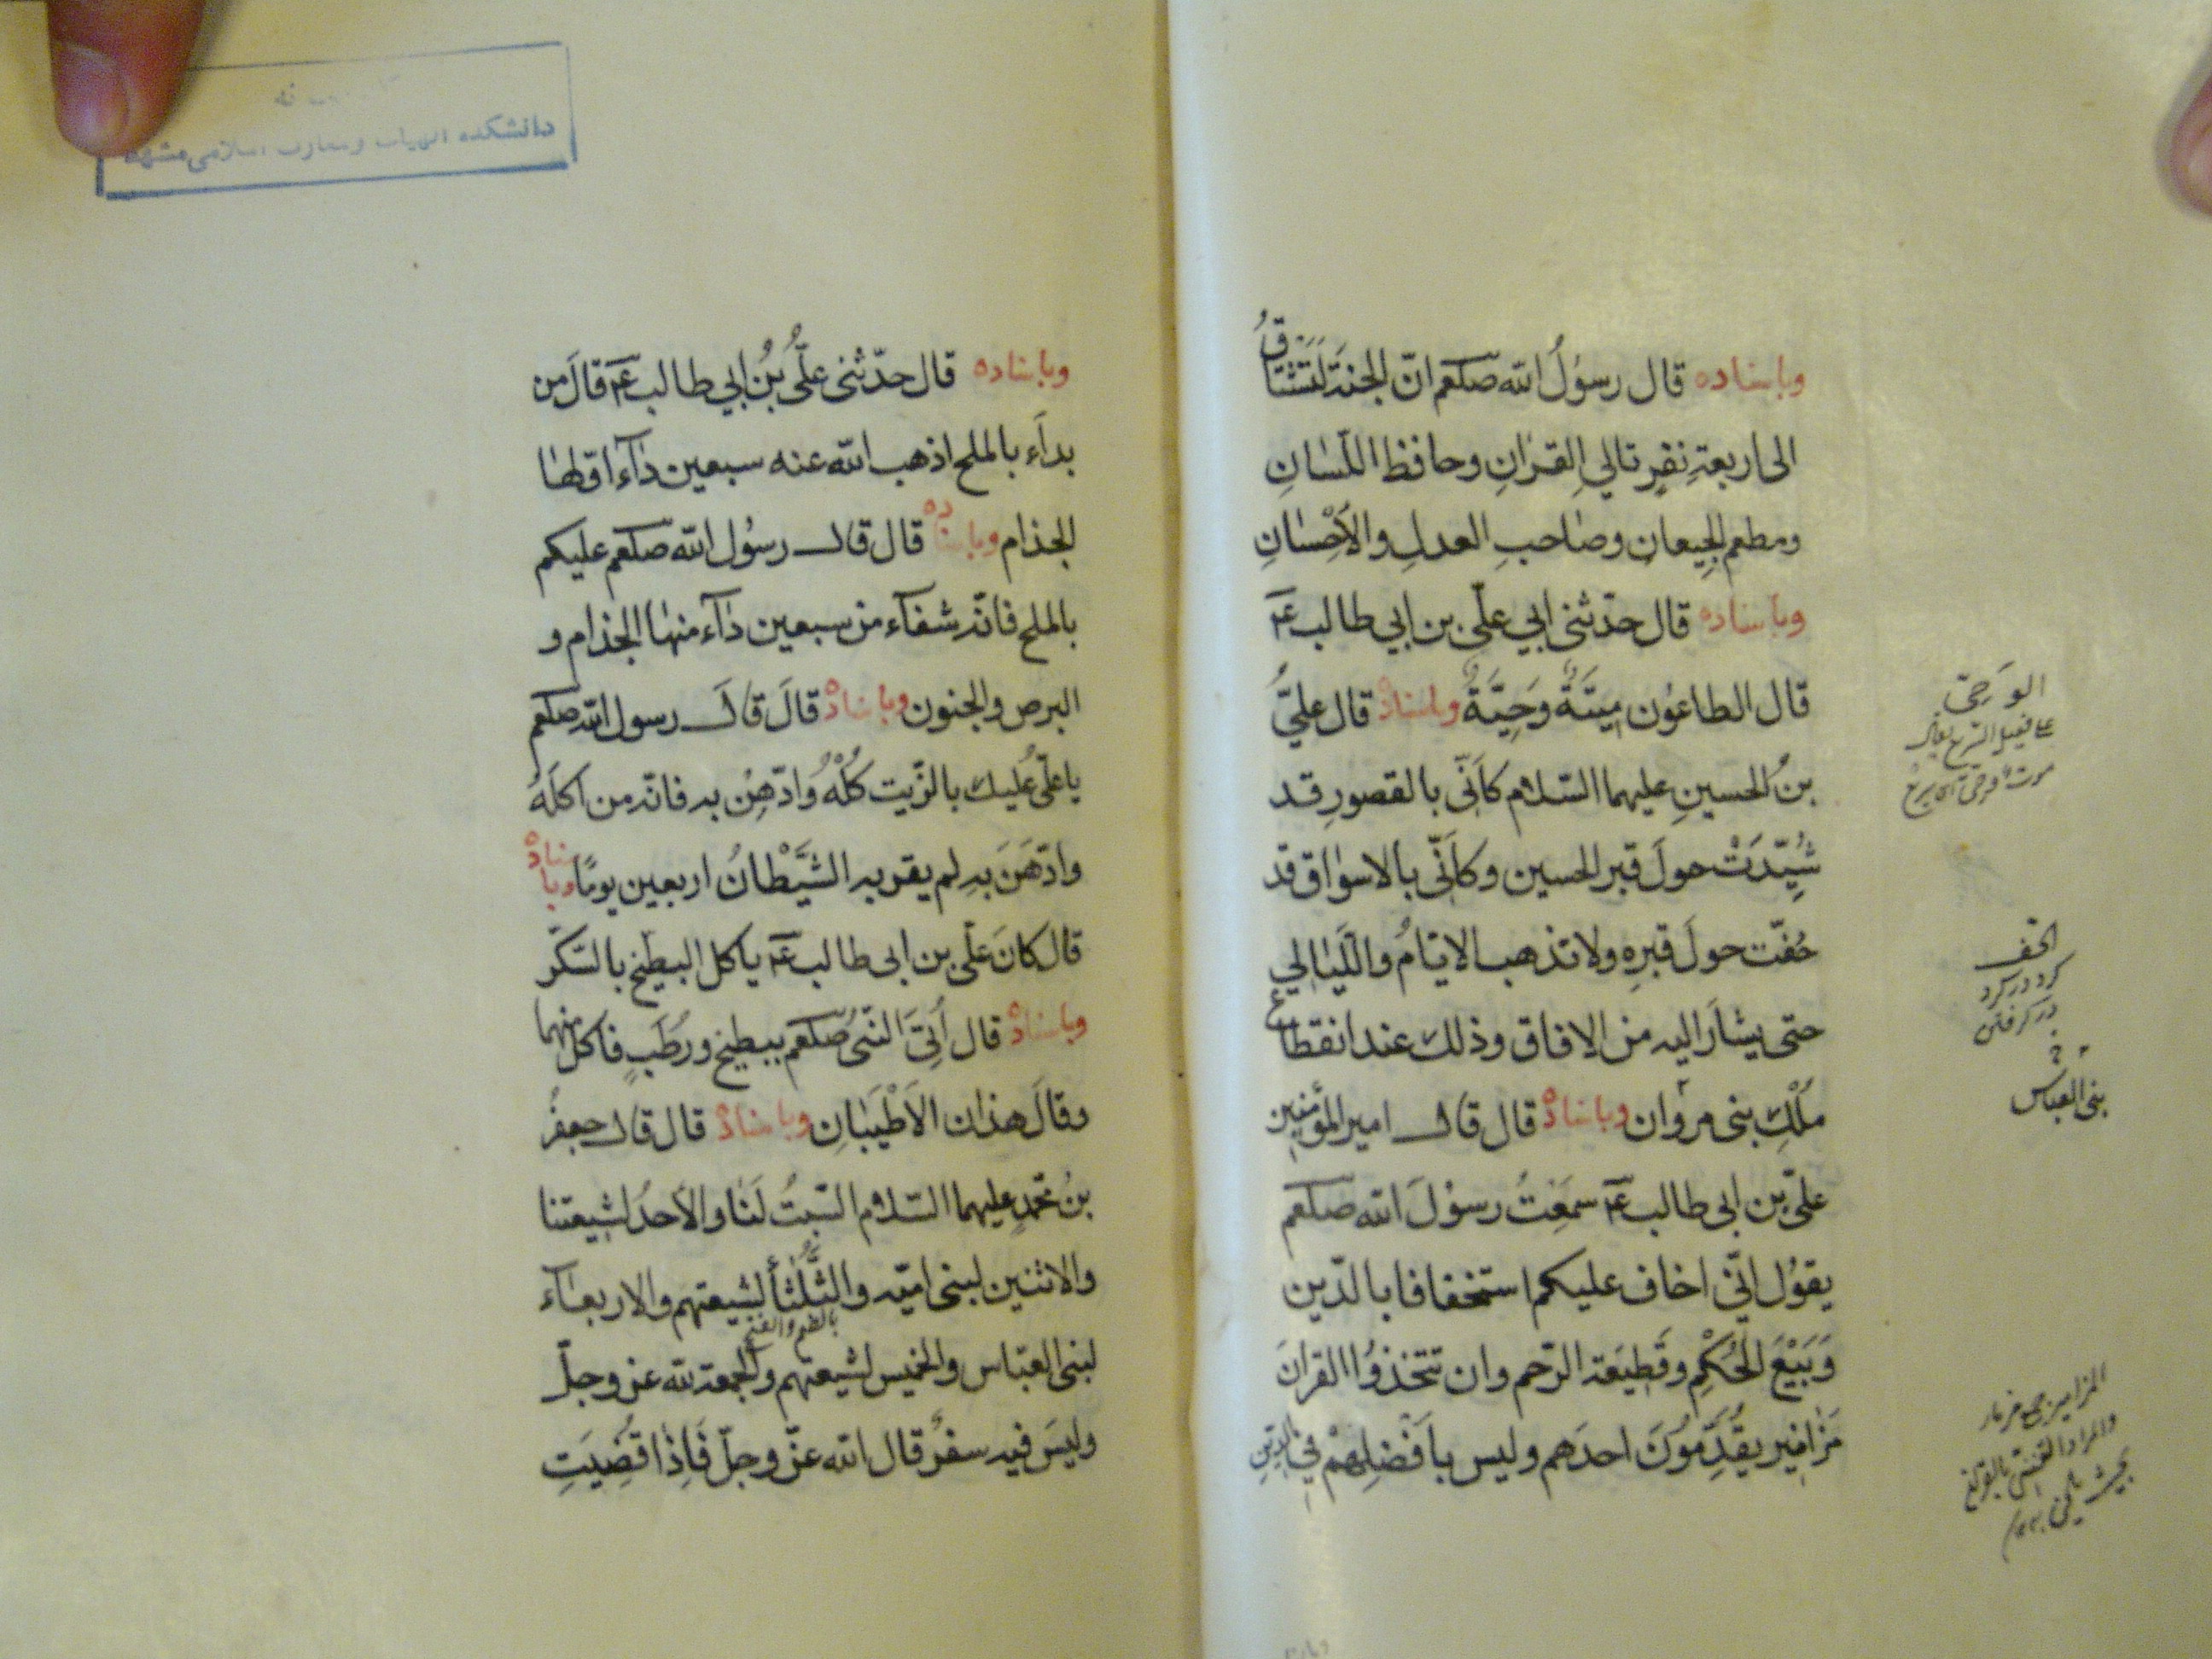 وباسناده قال رسوُلُ الله صلعم انّ الجنة لَتَشتاقُ
الى اربعةِ نفرٍ تالىِ القرانِ وحافظ اللّسٰانِ
ومطعم الجيعانِ وصٰاحبِ العدلِ والاَحْسٰانِ
وباسناده قال حدّثنى ابي علّى بن ابي طالب عم
قال الطاعوُن مِيتَةٌ وَحِيَّةٌ وباسناده قال علىُّ
بنُ الحسينِ عليهما السّلام كاَنّى بالقصورِ قد
شُيِّدَتْ حولَ قبر الحسين وكاَنّى بالاسوٰاق قد
حُفّت حولَ قبرِهِ ولا تذهب الايّامُ واللّيٰالي
حتى يشارَ اليه من الافاق وذلك عند انقطاع
مُلْكِ بنى مروان وباسناده قال قال امير المؤمنين
علىّ بن ابى طالب عم سمعتُ رسوُلَ الله صلعم
يقوُل انّى اخاف عليكم استخفافا بالدّين
وَبَيْعَ الحُكْمِ وقَطِيعَة الرّحم وان تتخذوُا القرانَ
مَزٰاميرَ يقُدِّموُنَ احدَهم وليس بافْضلِهمْ فى الدّينِ
الوَحىّ
الحف
كرد در كرد
در گرفتن
بنى العباس
المزامير جمع مزمار
دانشكده الهيات ومعارف اسلامى مشهد
وباسناده قال حدّثنى علىُّ بنُ ابي طالب عم قالَ من
بداَء بالملح اذهب الله عنه سبعين دٰآء اقلها
الجذام وباسناده قال قال رسوُل الله صلعم عليكم
بالملح فانّه شفآء من سبعين دٰآء منهٰا الجذام و
البرص والجنون وباسناده قالَ قالَ رسول الله صلعم
يا علىّ عُليك بالزّيت كُلْهُ وادّهِنْ به فانّه من اكلَهُ
وادّهَنَ بهِ لم يقربه الشَّيْطانُ اربعين يومًا وباسناده
قال كانَ علّى بن ابى طالب عم ياكل البطيخ بالسّكّر
وباسناده قال أُتِىَ النّبىُ صلعم ببطيخ ورُطَبٍ فاكل منهما
وقالَ هذان الاَطْيَبٰانِ وباسناده قال قال جعفرُ
بنُ محمّدٍ عليهما السّلام السّبتُ لَنٰا والاَحدُ لشيعتنا
والاثنين لبنى اميّه والثُّلُثأ لشيعتهم والاربعٰآء
لبنى العبّاس والخميس لشيعتهم والجمعة لله عز وجلّ
بالضم والفتح
وليسَ فيه سفرٌ قال الله عزّ وجلّ فَاِذٰا قضُيَتِ